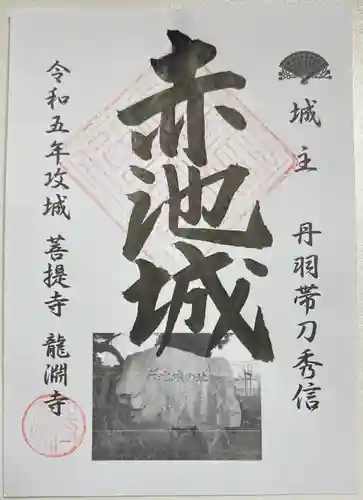 城主 丹羽帯刀秀信
赤池城
令和五年攻城 菩提寺 龍淵寺